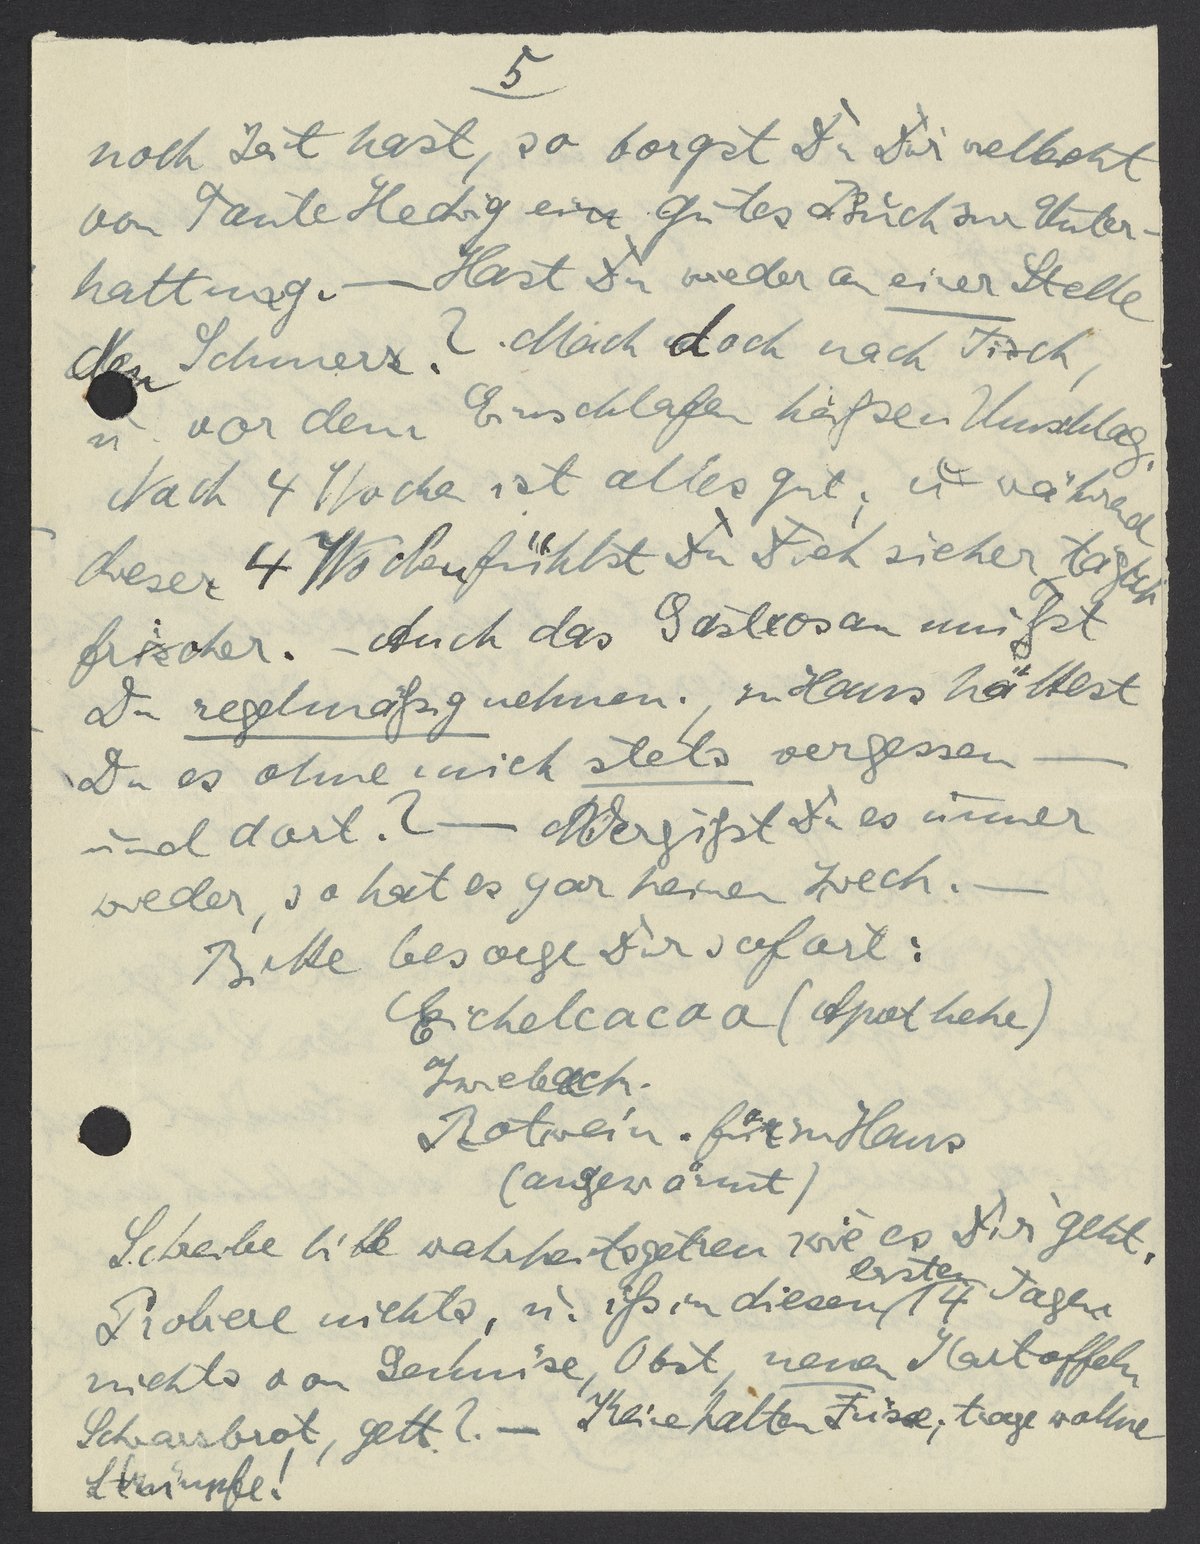 5
noch Zeit hast, so borgst Du Dir vielleicht
von Tante Hedwig ein gutes Buch zur Unter-
haltung. — Hast Du wieder an einer Stelle
den Schmerz? Mach doch nach Tisch,
u. vor dem Einschlafen heißen Umschlag.
Nach 4 Wochen ist alles gut, u. während
dieser 4 Wochen fühlst Du Dich sicher täglich
frischer. - Auch das Gastrosan mußt
Du regelmäßig nehmen., zu Haus hättest
Du es ohne mich stets vergessen —
und dort? — Vergißt Du es immer
wieder, so hat es gar keinen Zweck. —
Bitte besorge Dir sofort:
Eichelcacao (Apotheke)
Zwieback.
Rotwein. für zu Haus
(angewärmt)
Schreibe bitte wahrheitsgetreu wie es Dir geht.
Probiere nichts, u. iß in diesen ersten 14 Tagen
nichts von Gemüse, Obst, neuen Kartoffeln
Schwarzbrot, gelt? — Keine kalten Füsse, trage wollne
Strümpfe!